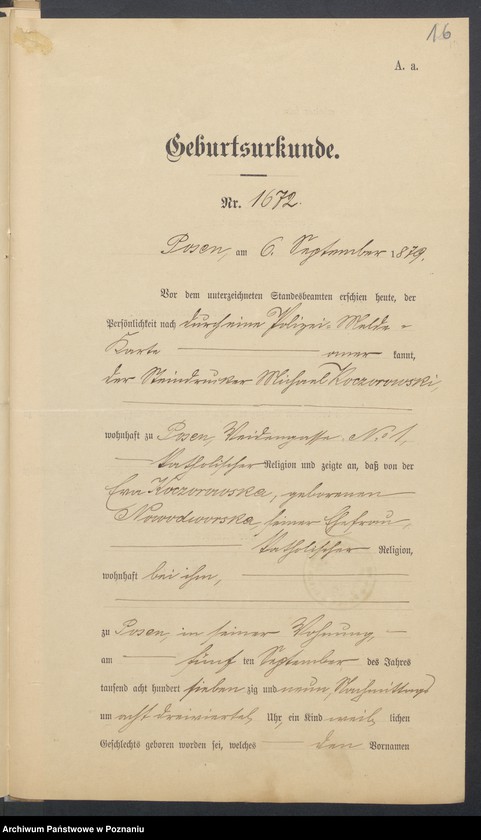 16
A. a.
Geburtsurkunde.
Nr. 1672.
Posen, am 6. September 1879.
Vor dem unterzeichneten Standesbeamten erschien heute, der
Persönlichkeit nach durch eine Polizei-Melde-
Karte aner kannt,
der Steindrucker Michael Koczorowski,
wohnhaft zu Posen, Weidengasse No 1,
katholischer Religion und zeigte an, daß von der
Eva Koczorowska, geborenen
Nowodworska, seiner Ehefrau,
katholischer Religion,
wohnhaft bei ihm,
zu Posen, in seiner Wohnung,
am fünf ten September des Jahres
tausend acht hundert sieben zig und neun, Nachmittags
um acht dreiviertel Uhr, ein Kind weib lichen
Geschlechts geboren worden sei, welches den Vornamen
Archiwum Państwowe w Poznaniu